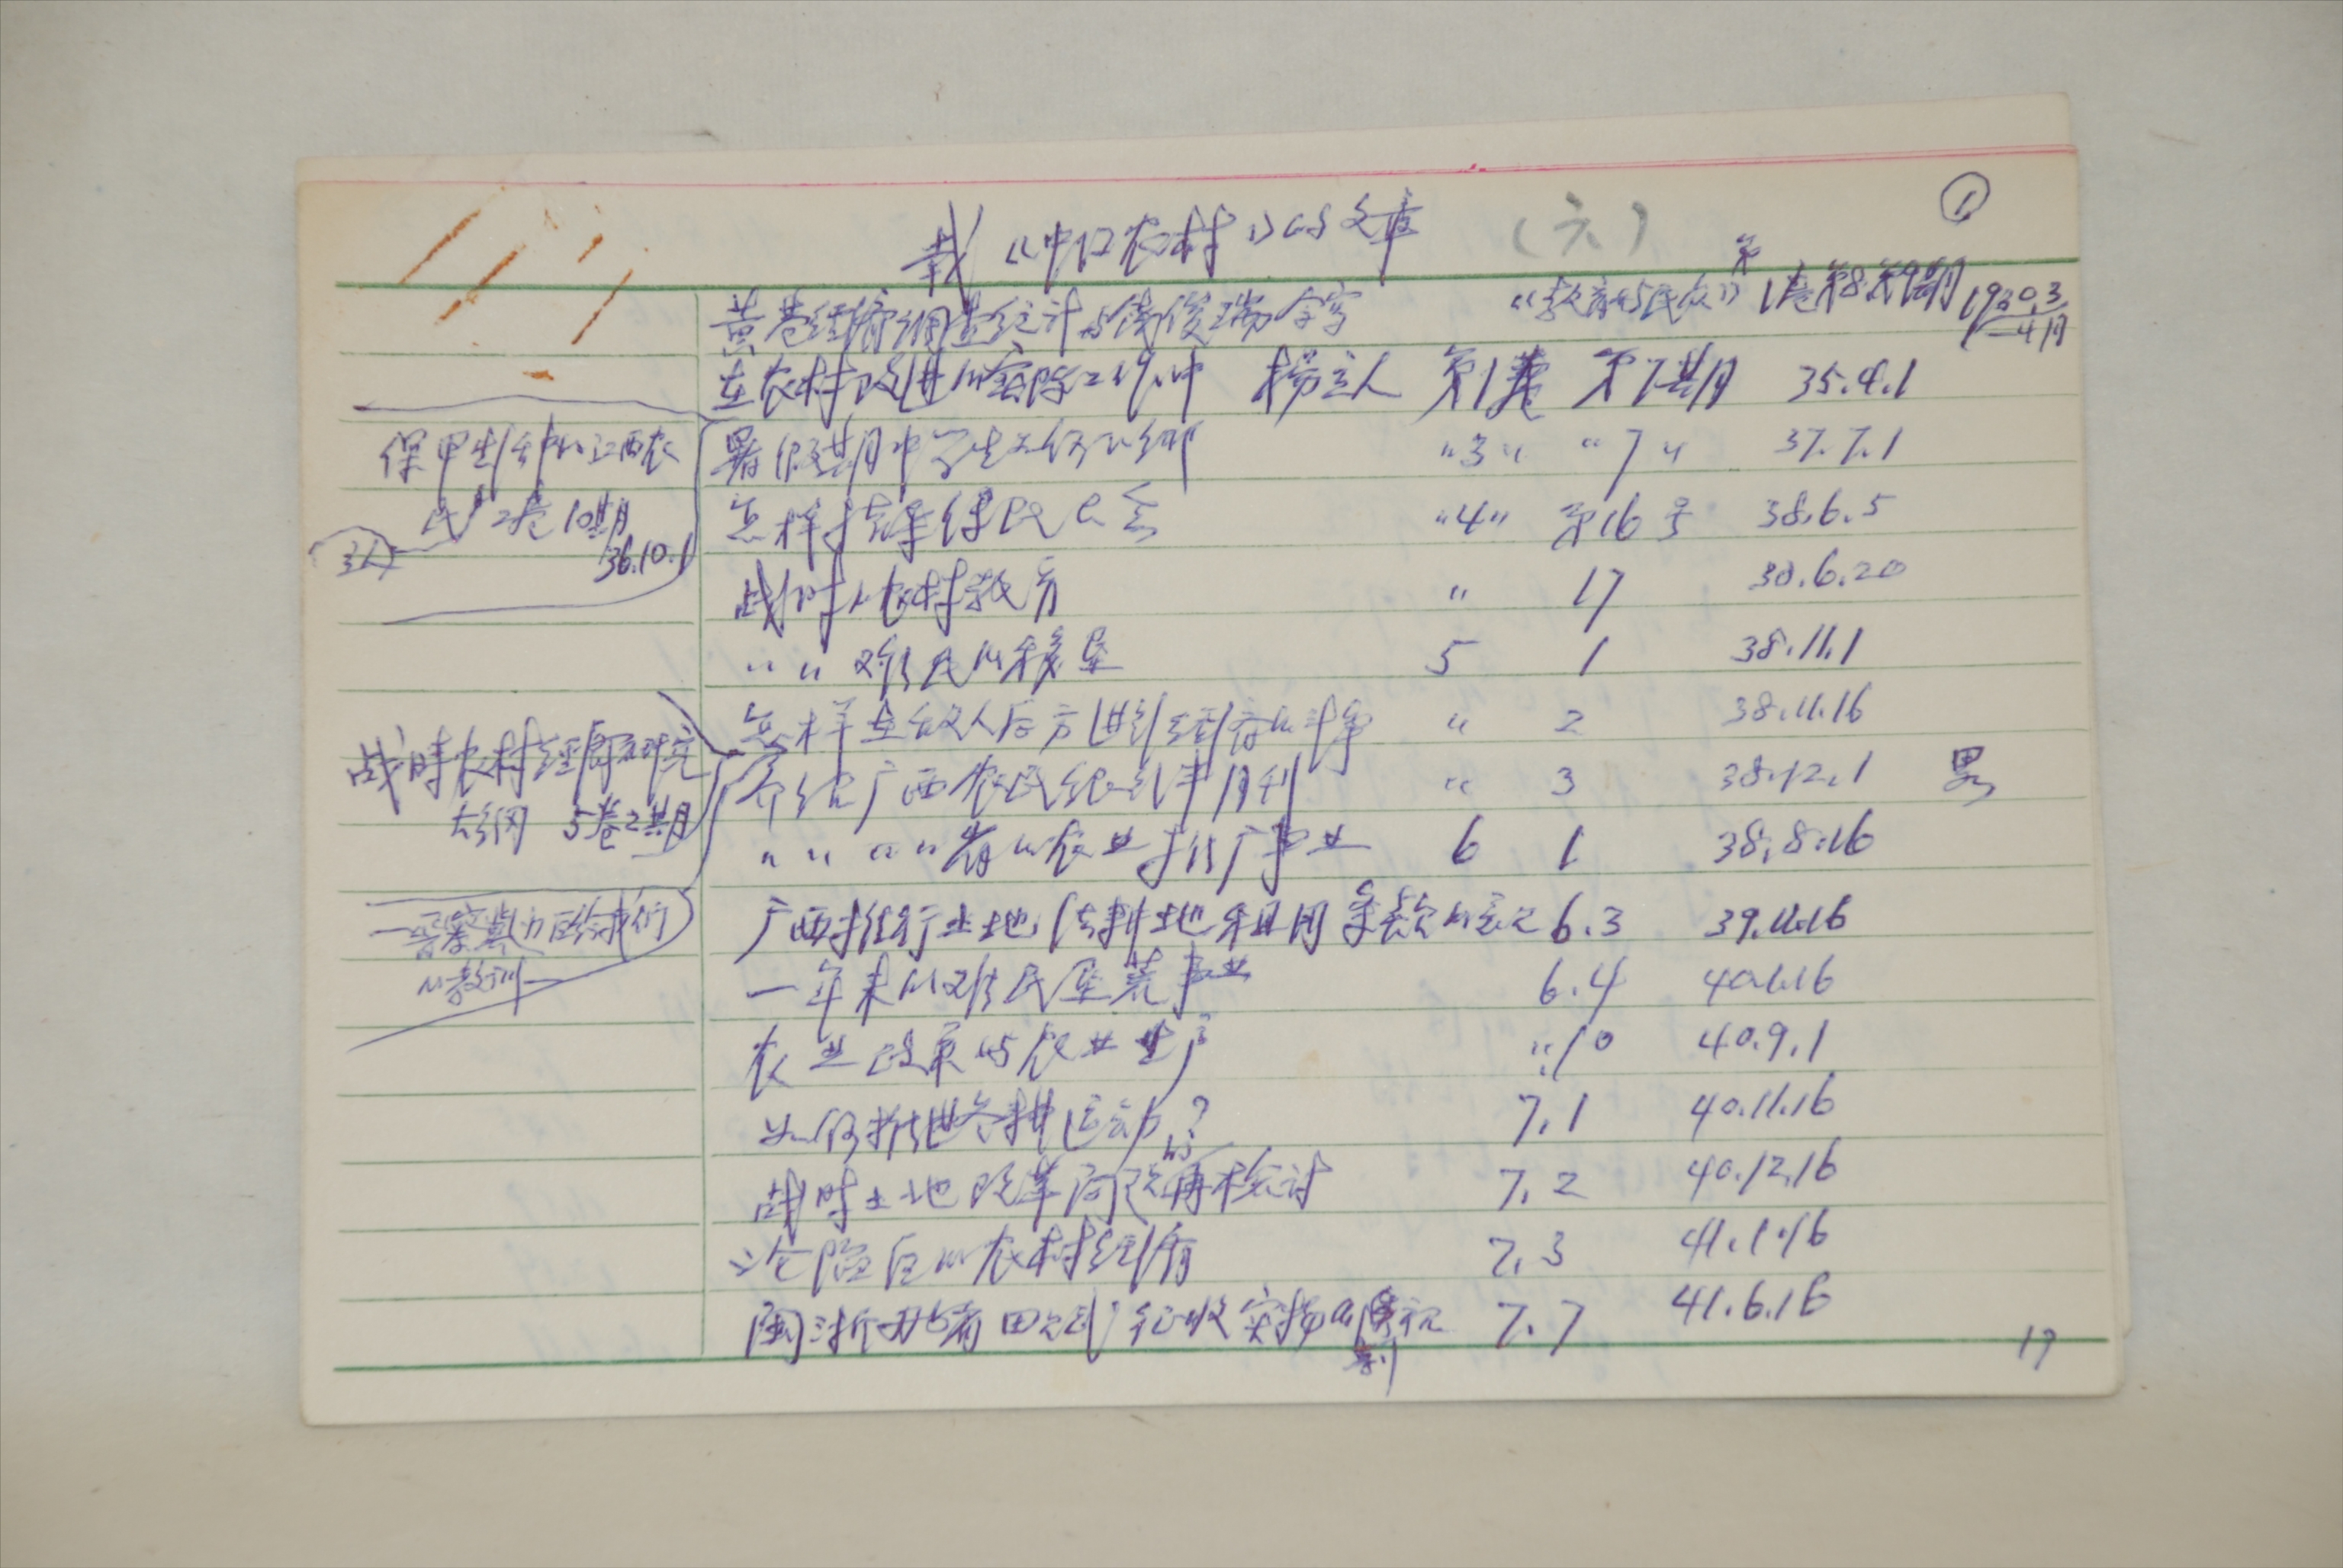 载《中囗农村》的文章 （六） ①
黄巷经济调查统计 与钱俊瑞合写 《教育与民众》第1卷第8第9期 1930.3—4月
在农村改进的实际工作中 杨立人 第1卷 第7期 35.4.1
暑假期中学生工作 〃3〃 〃7〃 37.7.1
怎样 〃4〃 第16号 38.6.5
战时的农村教育 〃 17 38.6.20
〃〃难民的移垦 5 1 38.11.1
怎样在敌人后方进行经济的斗争 〃 2 38.11.16
介绍广西农民 月刊 〃 3 38.12.1 男
〃〃〃〃省的农业推广事业 6 1 38.8.16
广西推行土地法耕地租用条款的 6.3 39.11.16
一年来的难民垦荒事业 6.4 40.1.16
农业政策与农业生产 〃10 40.9.1
如何推进冬耕运动？ 7.1 40.11.16
战时土地改革问题的再检讨 7.2 40.12.16
论 区的农村经济 7.3 41.1.16
闽浙 省田赋征收实物的 7.7 41.6.16
保甲制度中的江西农
民 2卷10期
36.10.1
立人
战时农村经济研究
大纲 5卷2期
一晋察冀 给我们
的教训一
17